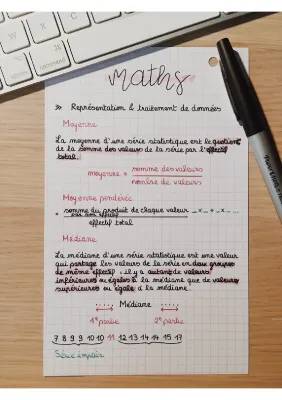 maths
» Représentation & traitement de données
Moyenne
La moyenne d'une série statistique est le quotient
de la somme des valeurs de la série par l'effectif
total.
moyenne = somme des valeurs
nombre de valeurs
Moyenne pondérée
= somme du produit de chaque valeur ...x...+...x...
par son effectif
effectif total
Médiane
La médiane d'une série statistique est une valeur
qui partage les valeurs de la série en deux groupes
de même effectif : il y a autant de valeurs
inférieures ou égales à la médiane que de valeurs
supérieures ou égale à la médiane.
Médiane
1e partie 2e partie
7 8 9 9 10 10 11 12 13 14 14 15 17
Série impair